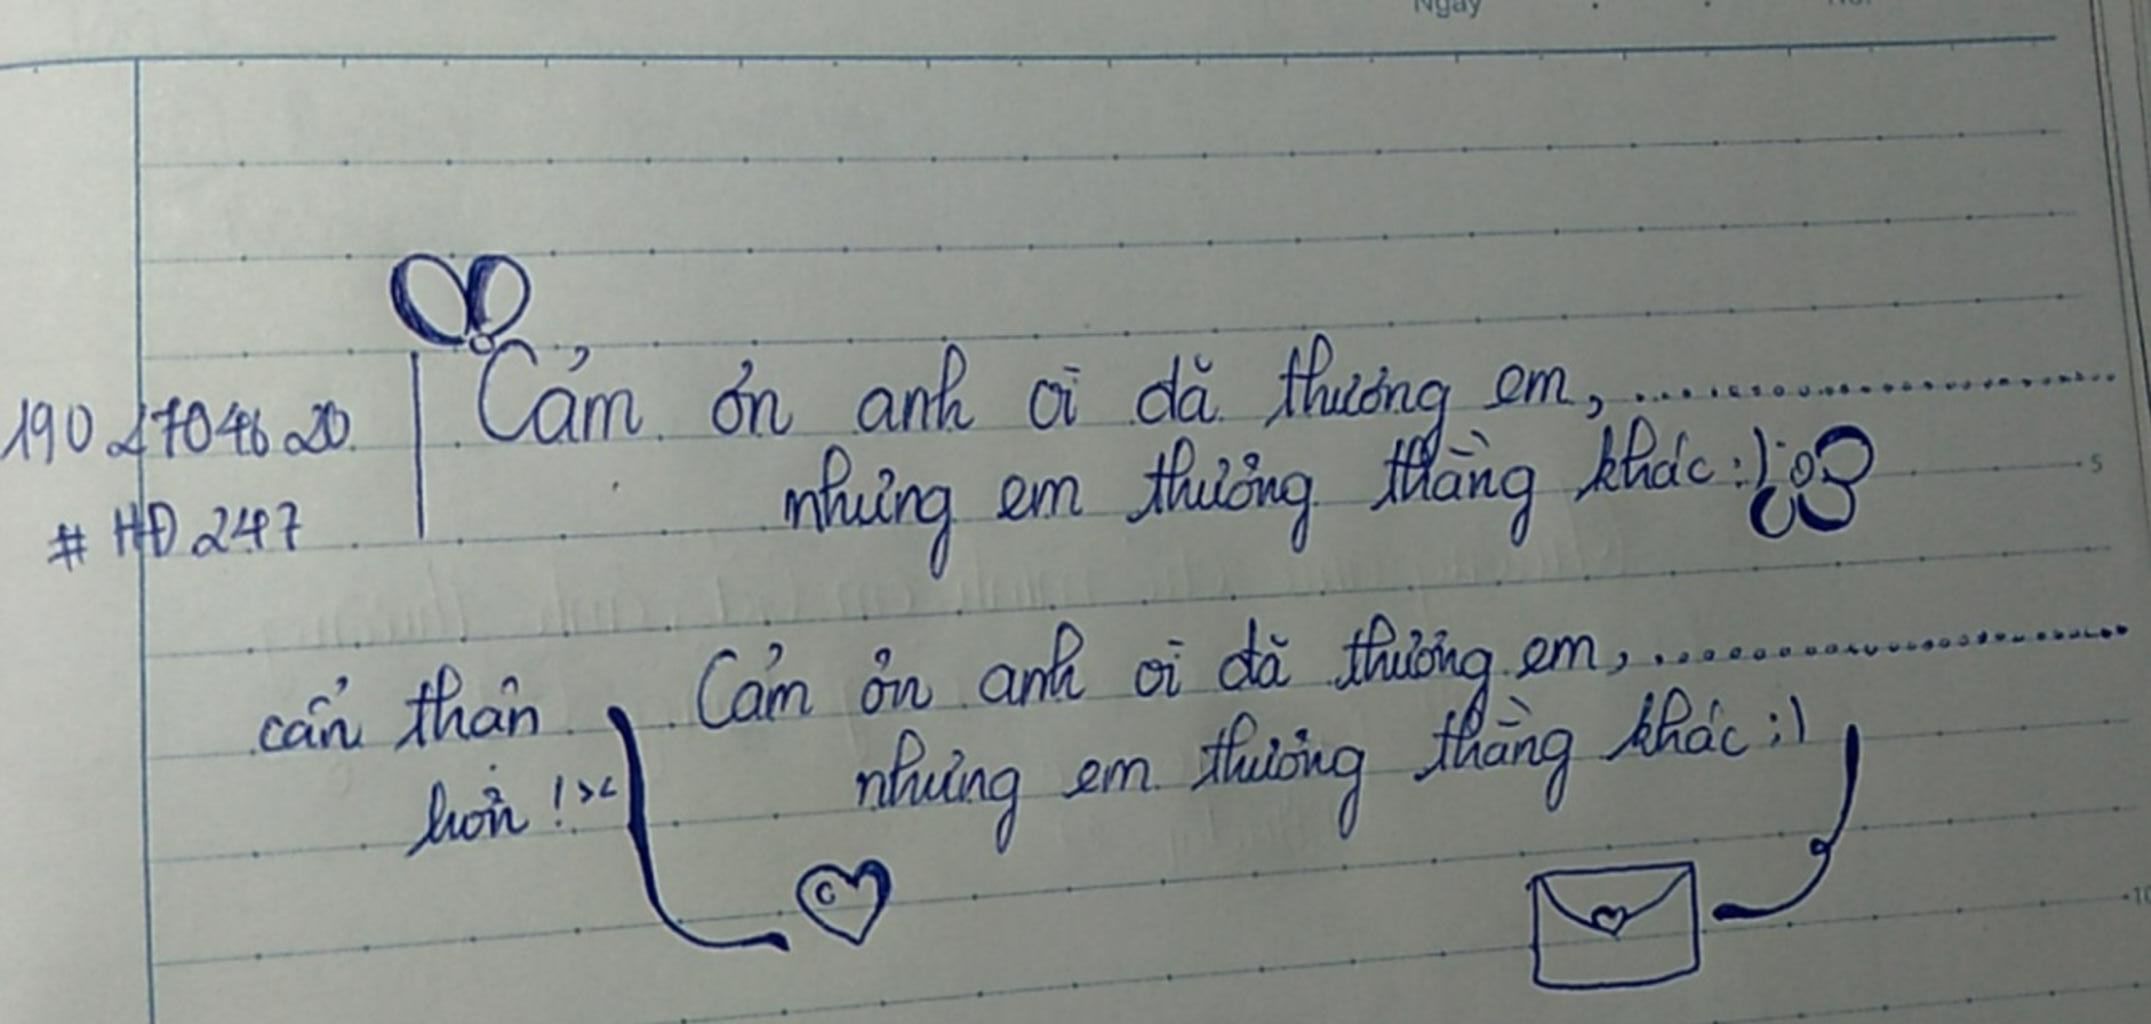 Ngày
19027041620
#HĐ247
Cảm ơn anh ơi đã thương em, ..............................
nhưng em thương thằng khác :)
5
Cảm ơn anh ơi đã thương em, ..............................
nhưng em thương thằng khác :)
cẩn thận
hơn ! ><
C
10